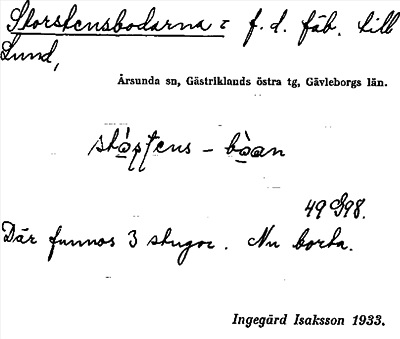 Storstensbodarna : f. d. fäb. till
Lund,
Årsunda sn, Gästriklands östra tg, Gävleborgs län.
Där funnos 3 stugor. Nu borta.
Ingegärd Isaksson 1933.